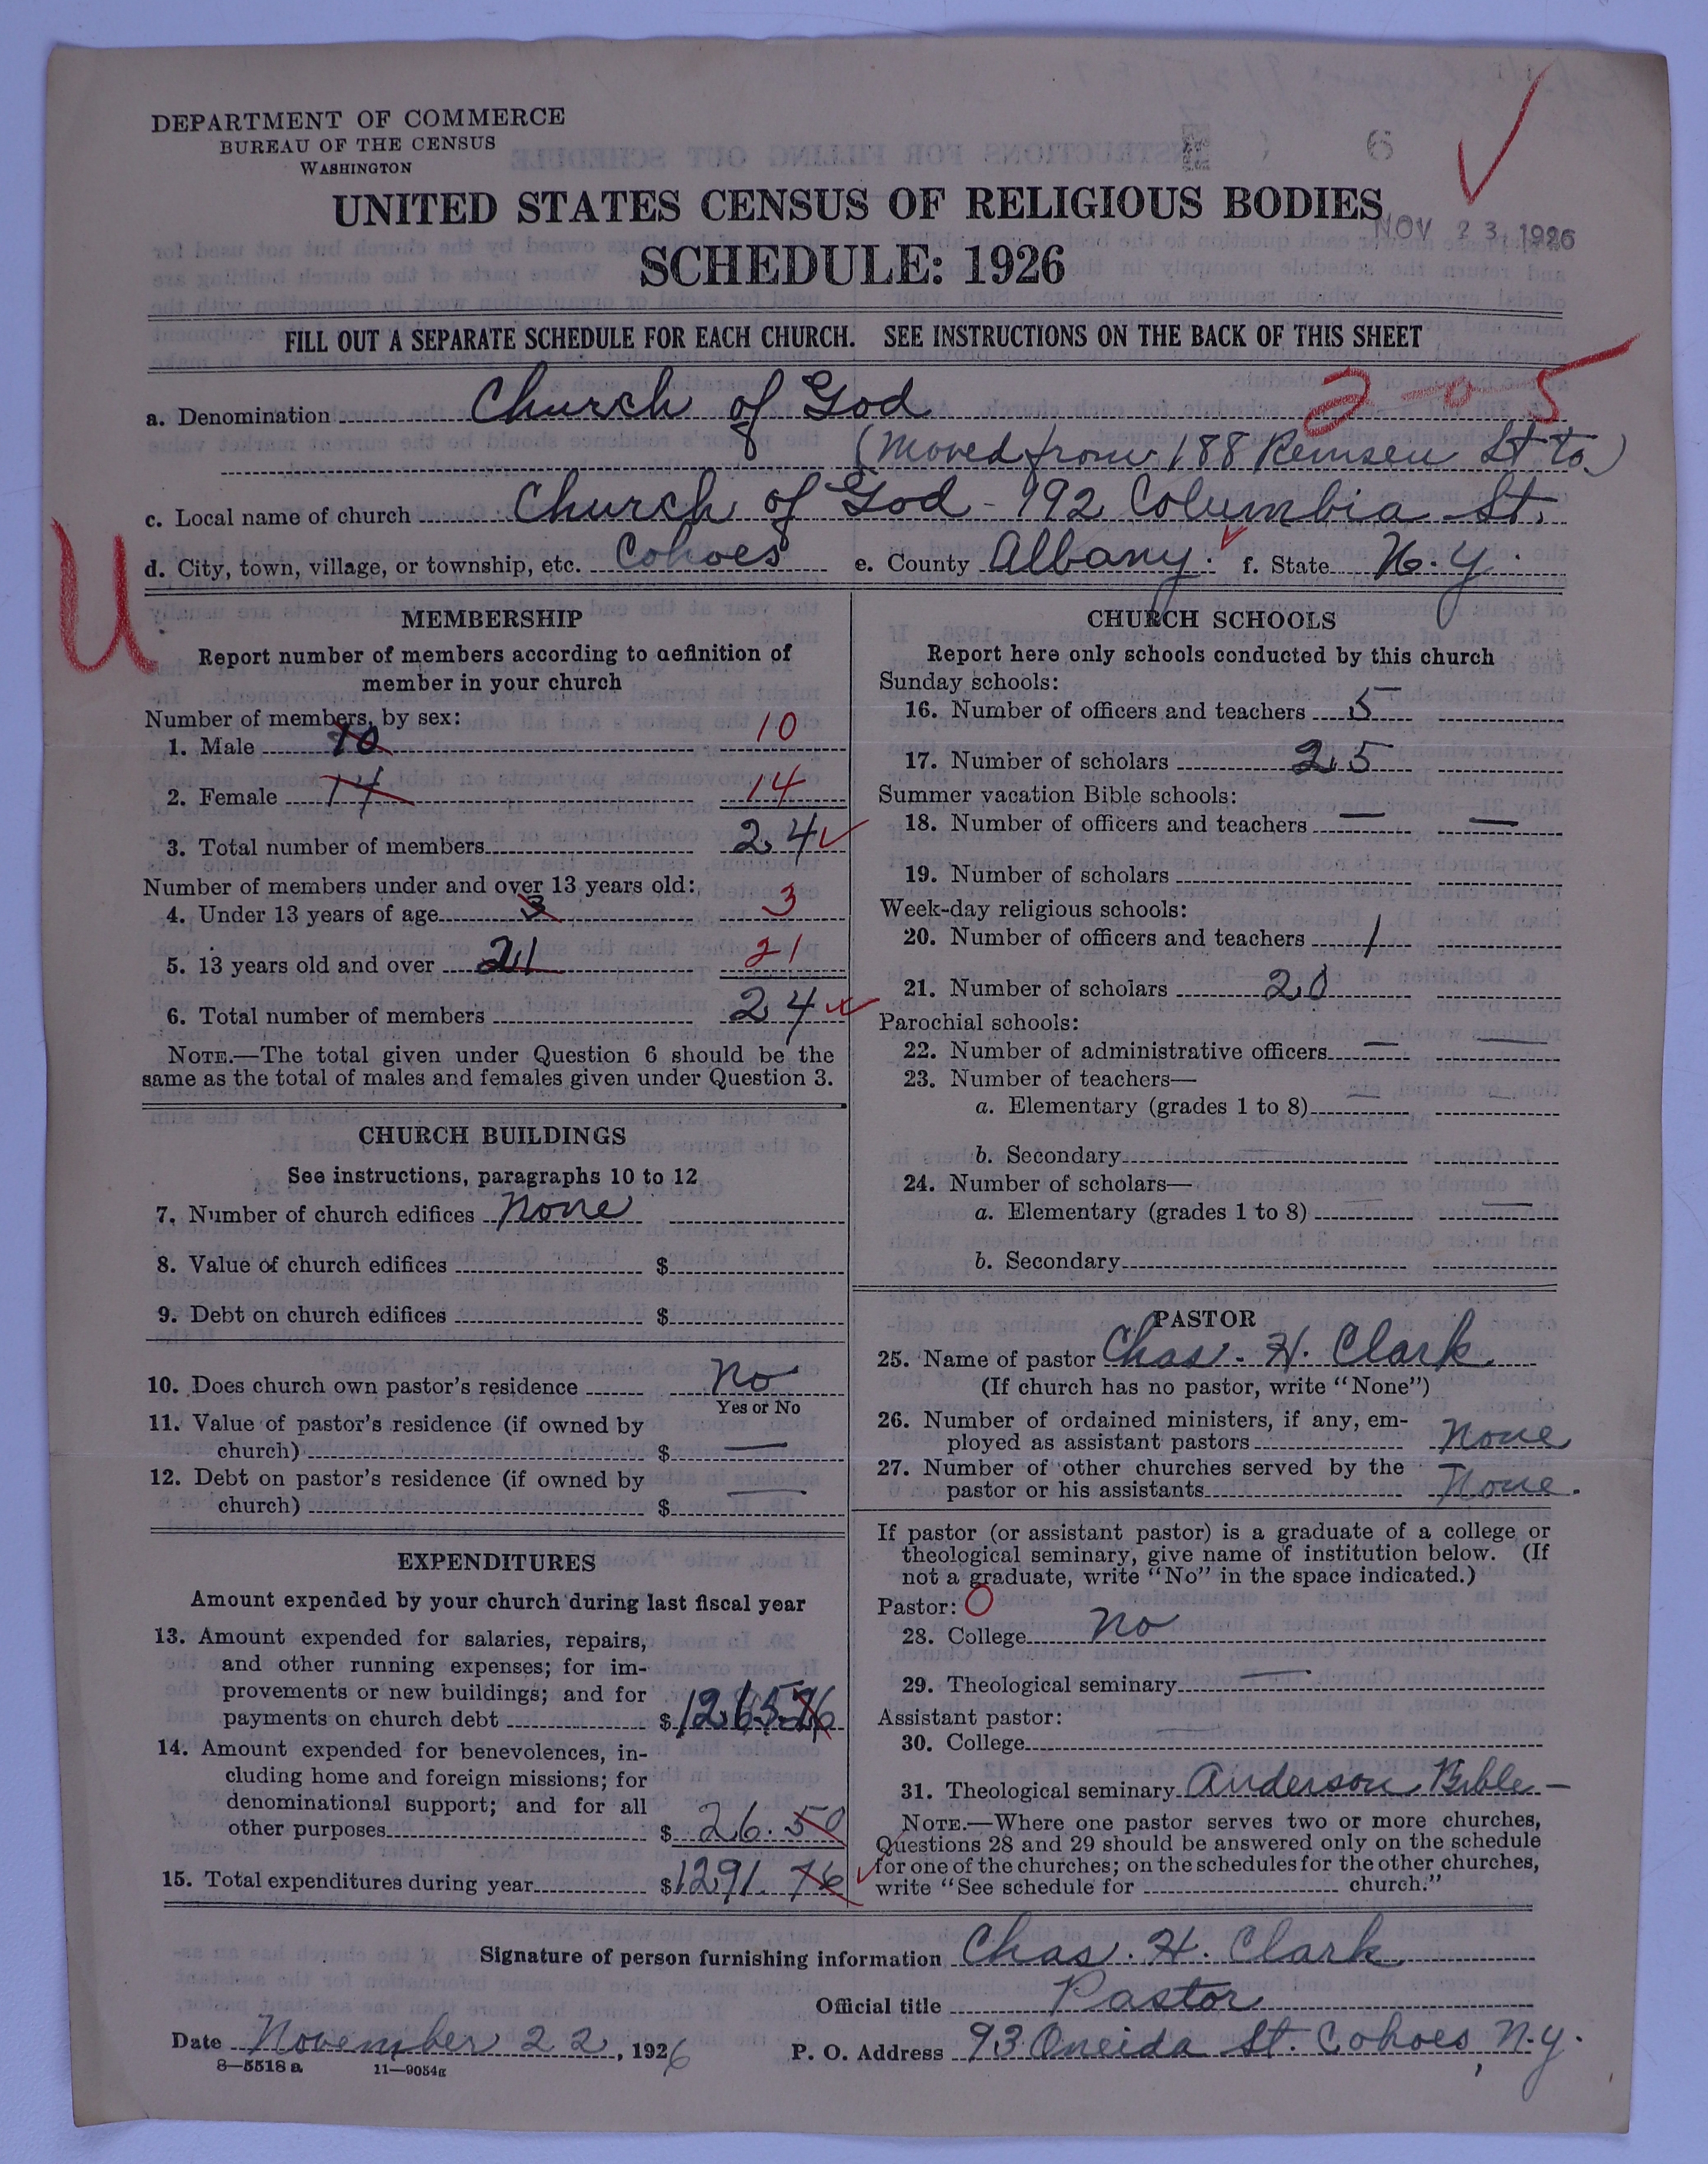 DEPARTMENT OF COMMERCE
BUREAU OF THE CENSUS
WASHINGTON
6
UNITED STATES CENSUS OF RELIGIOUS BODIES
NOV 23 1926
SCHEDULE: 1926
FILL OUT A SEPARATE SCHEDULE FOR EACH CHURCH. SEE INSTRUCTIONS ON THE BACK OF THIS SHEET
a. Denomination Church of God 2-0-5
(Moved from 188 Remsen St to)
c. Local name of church Church of God - 192 Columbia St.
d. City, town, village, or township, etc. Cohoes e. County Albany. f. State N.Y.
U
MEMBERSHIP
Report number of members according to definition of
member in your church
Number of members, by sex:
1. Male 10 10
2. Female 14 14
3. Total number of members 24
Number of members under and over 13 years old:
4. Under 13 years of age 3 3
5. 13 years old and over 21 21
6. Total number of members 24
NOTE.—The total given under Question 6 should be the
same as the total of males and females given under Question 3.
CHURCH BUILDINGS
See instructions, paragraphs 10 to 12
7. Number of church edifices None
8. Value of church edifices $
9. Debt on church edifices $
10. Does church own pastor's residence No
Yes or No
11. Value of pastor's residence (if owned by
church) $ —
12. Debt on pastor's residence (if owned by
church) $ —
EXPENDITURES
Amount expended by your church during last fiscal year
13. Amount expended for salaries, repairs,
and other running expenses; for im-
provements or new buildings; and for
payments on church debt $1265.26
14. Amount expended for benevolences, in-
cluding home and foreign missions; for
denominational support; and for all
other purposes $ 26.50
15. Total expenditures during year $1291.76
CHURCH SCHOOLS
Report here only schools conducted by this church
Sunday schools:
16. Number of officers and teachers 5
17. Number of scholars 25
Summer vacation Bible schools:
18. Number of officers and teachers — —
19. Number of scholars
Week-day religious schools:
20. Number of officers and teachers 1
21. Number of scholars 20
Parochial schools:
22. Number of administrative officers — —
23. Number of teachers—
a. Elementary (grades 1 to 8) — —
b. Secondary
24. Number of scholars—
a. Elementary (grades 1 to 8) — —
b. Secondary
PASTOR
25. Name of pastor Chas. H. Clark
(If church has no pastor, write "None")
26. Number of ordained ministers, if any, em-
ployed as assistant pastors None
27. Number of other churches served by the
pastor or his assistants None.
If pastor (or assistant pastor) is a graduate of a college or
theological seminary, give name of institution below. (If
not a graduate, write "No" in the space indicated.)
Pastor: O
28. College No
29. Theological seminary —
Assistant pastor:
30. College —
31. Theological seminary Anderson Bible —
NOTE.—Where one pastor serves two or more churches,
Questions 28 and 29 should be answered only on the schedule
for one of the churches; on the schedules for the other churches,
write "See schedule for church."
Signature of person furnishing information Chas. H. Clark
Official title Pastor
Date November 22, 1926 P. O. Address 93 Oneida St. Cohoes, N.Y.
8—5518 a 11—9054a